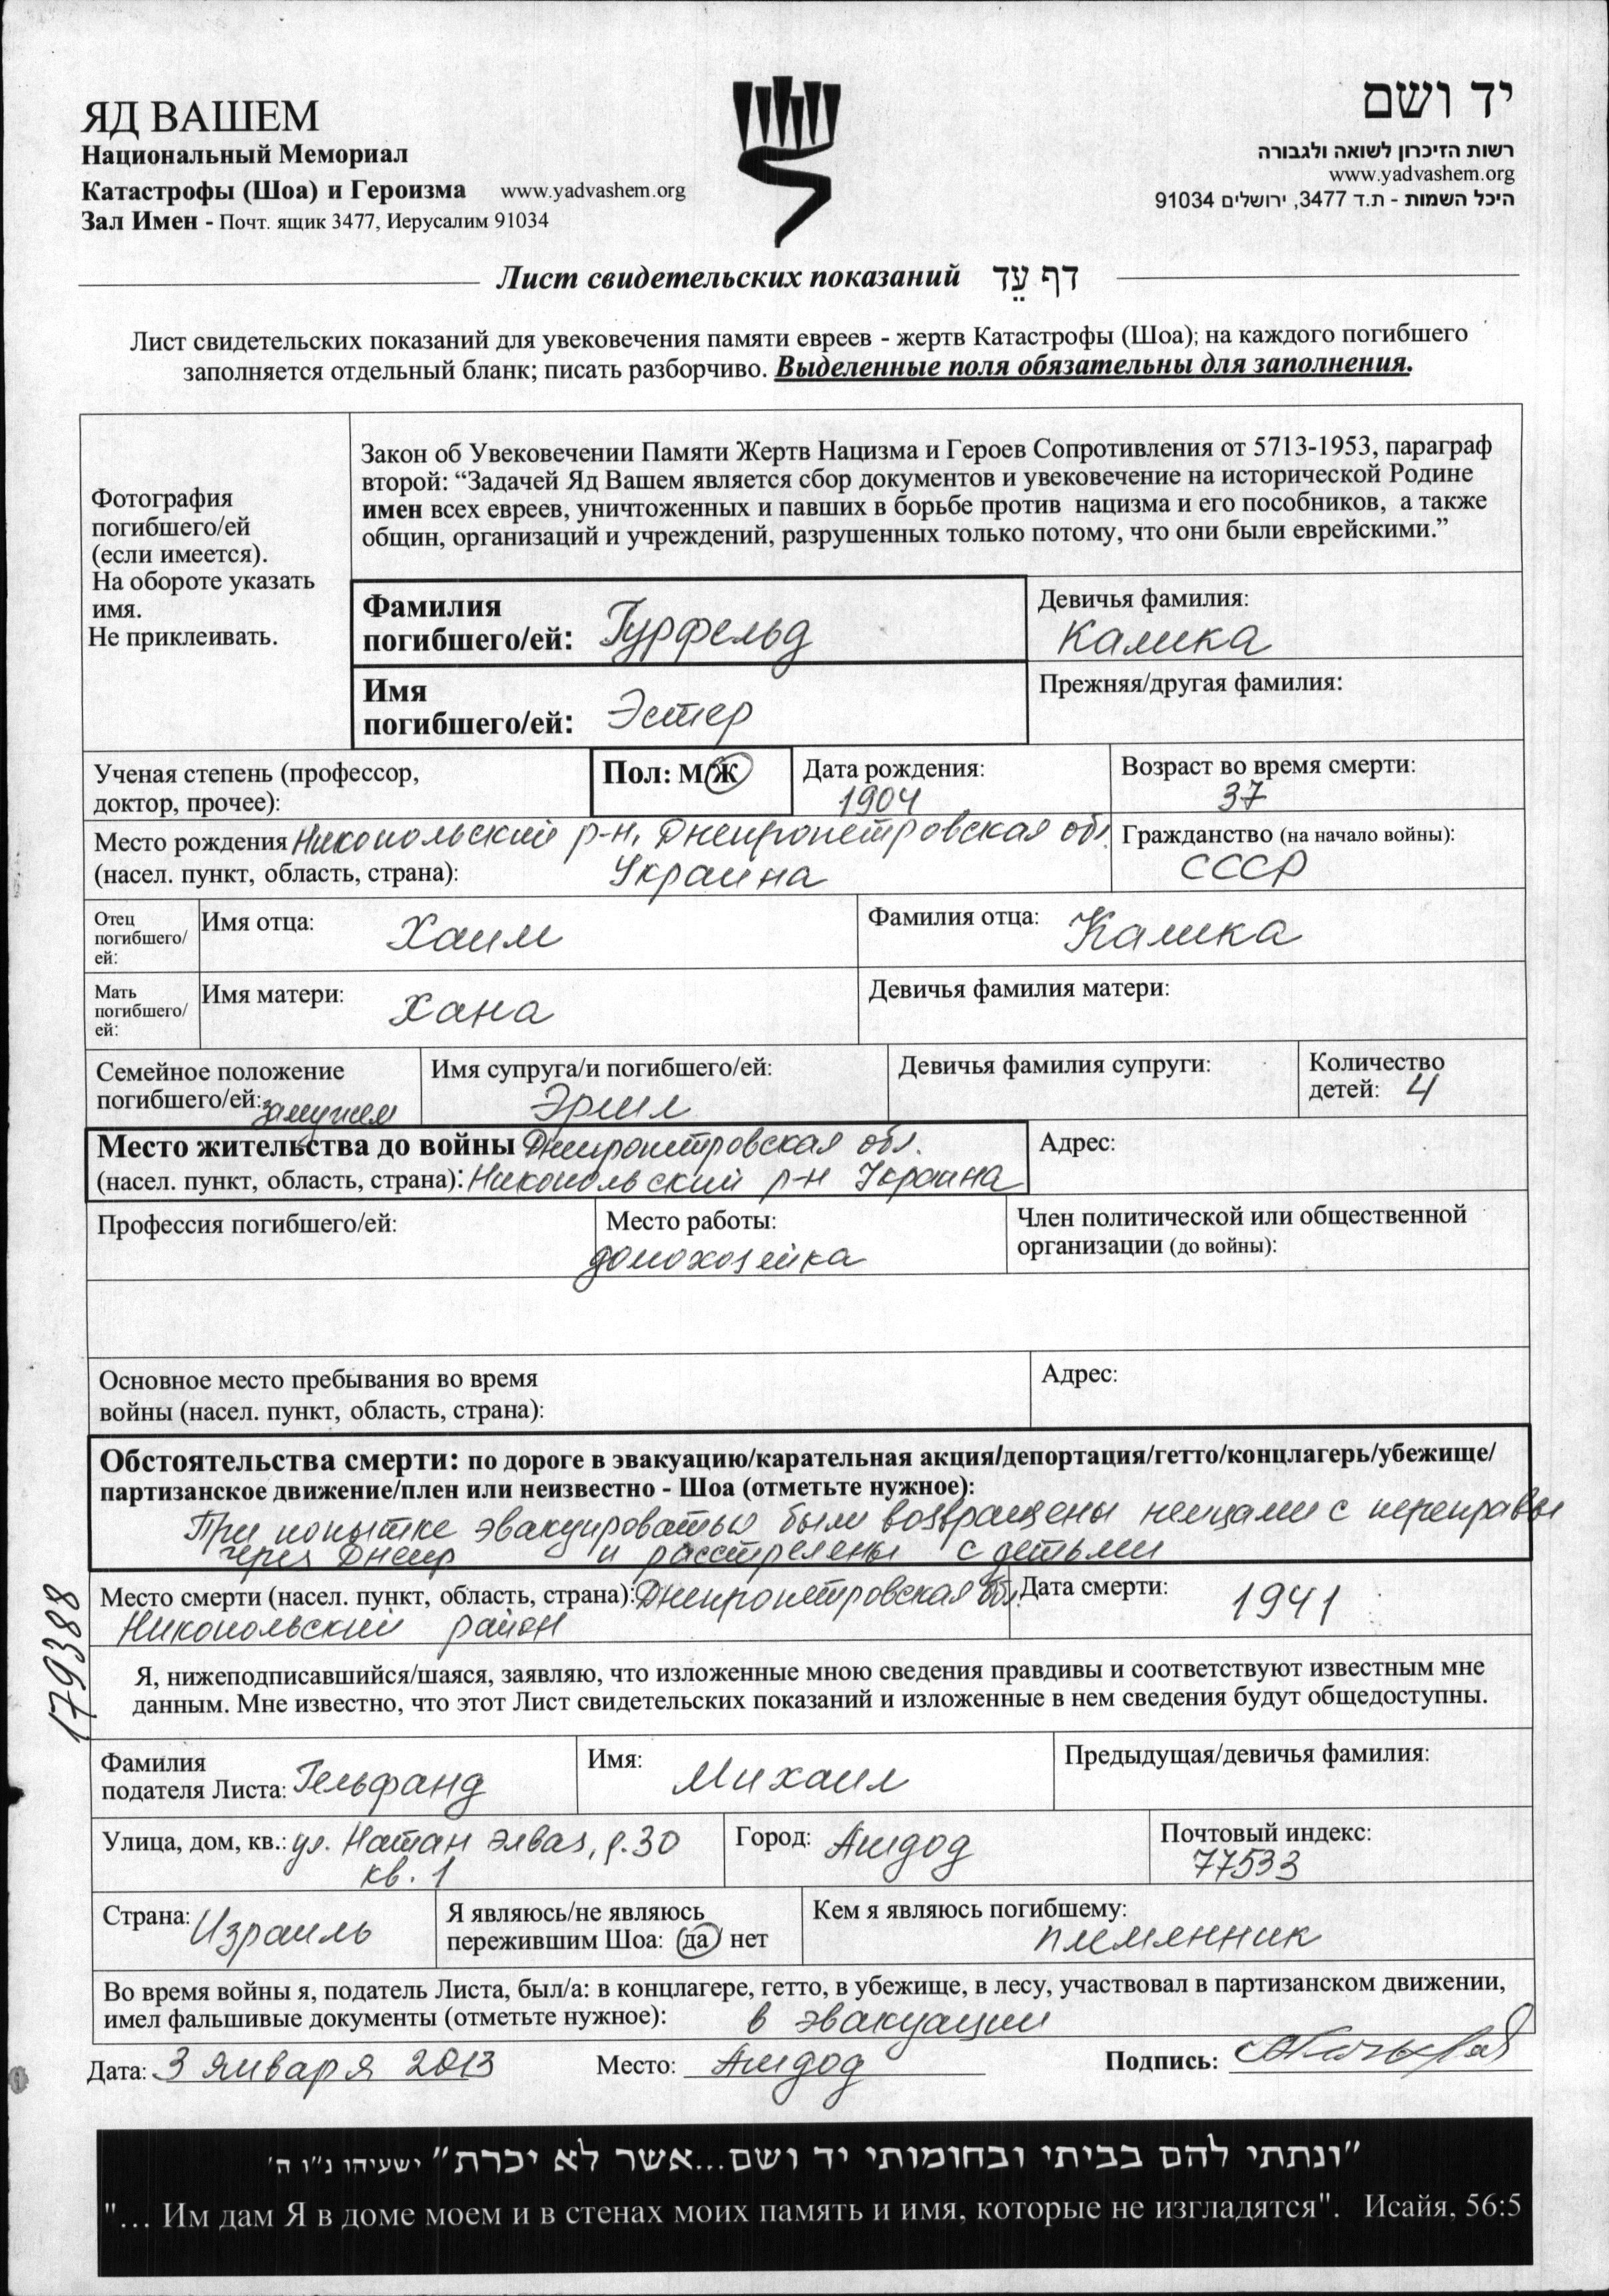 ЯД ВАШЕМ
Национальный Мемориал
Катастрофы (Шоа) и Героизма www.yadvashem.org
Зал Имен - Почт. ящик 3477, Иерусалим 91034
יד ושם
רשות הזיכרון לשואה ולגבורה
www.yadvashem.org
היכל השמות - ת.ד 3477, ירושלים 91034
Лист свидетельских показаний דף עֵד
Лист свидетельских показаний для увековечения памяти евреев - жертв Катастрофы (Шоа); на каждого погибшего
заполняется отдельный бланк; писать разборчиво. Выделенные поля обязательны для заполнения.
Фотография
погибшего/ей
(если имеется).
На обороте указать
имя.
Не приклеивать.
Закон об Увековечении Памяти Жертв Нацизма и Героев Сопротивления от 5713-1953, параграф
второй: “Задачей Яд Вашем является сбор документов и увековечение на исторической Родине
имен всех евреев, уничтоженных и павших в борьбе против нацизма и его пособников, а также
общин, организаций и учреждений, разрушенных только потому, что они были еврейскими.”
Фамилия
погибшего/ей: Гурфельд
Девичья фамилия:
Калика
Имя
погибшего/ей: Эстер
Прежняя/другая фамилия:
Ученая степень (профессор,
доктор, прочее):
Пол: М/Ж
Дата рождения:
1904
Возраст во время смерти:
37
Место рождения Никопольский р-н, Днепропетровская обл.
(насел. пункт, область, страна): Украина
Гражданство (на начало войны):
СССР
Отец
погибшего/
ей:
Имя отца: Хаим
Фамилия отца: Калика
Мать
погибшего/
ей:
Имя матери: Хана
Девичья фамилия матери:
Семейное положение
погибшего/ей: замужем
Имя супруга/и погибшего/ей:
Эршл
Девичья фамилия супруги:
Количество
детей: 4
Место жительства до войны Днепропетровская обл.
(насел. пункт, область, страна): Никопольский р-н Украина
Адрес:
Профессия погибшего/ей:
Место работы:
домохозяйка
Член политической или общественной
организации (до войны):
Основное место пребывания во время
войны (насел. пункт, область, страна):
Адрес:
Обстоятельства смерти: по дороге в эвакуацию/карательная акция/депортация/гетто/концлагерь/убежище/
партизанское движение/плен или неизвестно - Шоа (отметьте нужное):
При попытке эвакуироваться были возвращены немцами с переправы
через Днепр и расстреляны с детьми
Место смерти (насел. пункт, область, страна): Днепропетровская обл.
Никопольский район
Дата смерти: 1941
179388
Я, нижеподписавшийся/шаяся, заявляю, что изложенные мною сведения правдивы и соответствуют известным мне
данным. Мне известно, что этот Лист свидетельских показаний и изложенные в нем сведения будут общедоступны.
Фамилия
подателя Листа: Гельфанд
Имя: Михаил
Предыдущая/девичья фамилия:
Улица, дом, кв.: ул. Натан Элваз, д. 30
кв. 1
Город: Ашдод
Почтовый индекс:
77533
Страна: Израиль
Я являюсь/не являюсь
пережившим Шоа: да/ нет
Кем я являюсь погибшему:
племянник
Во время войны я, податель Листа, был/а: в концлагере, гетто, в убежище, в лесу, участвовал в партизанском движении,
имел фальшивые документы (отметьте нужное): в эвакуации
Дата: 3 января 2013 Место: Ашдод Подпись:
"ונתתי להם בביתי ובחומותי יד ושם...אשר לא יכרת" ישעיהו נ"ו ה'
"... Им дам Я в доме моем и в стенах моих память и имя, которые не изгладятся". Исайя, 56:5